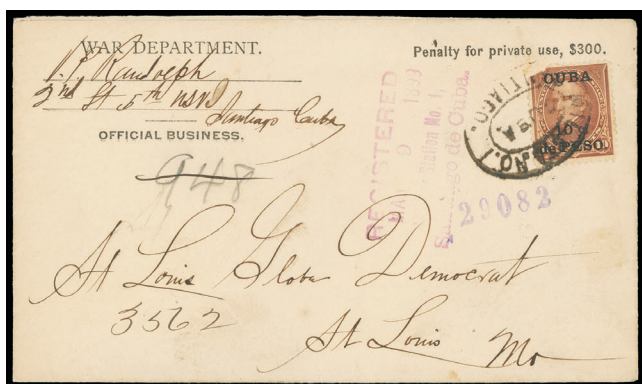 WAR DEPARTMENT.
Penalty for private use, $300.
Randolph
2nd Lt 5th USVI
Santiago Cuba
OFFICIAL BUSINESS.
948
REGISTERED
9 1899
Station No. 1,
Santiago de Cuba.
29082
CUBA
10
de PESO
NO. 1
St Louis Globe Democrat
3562
St Louis Mo